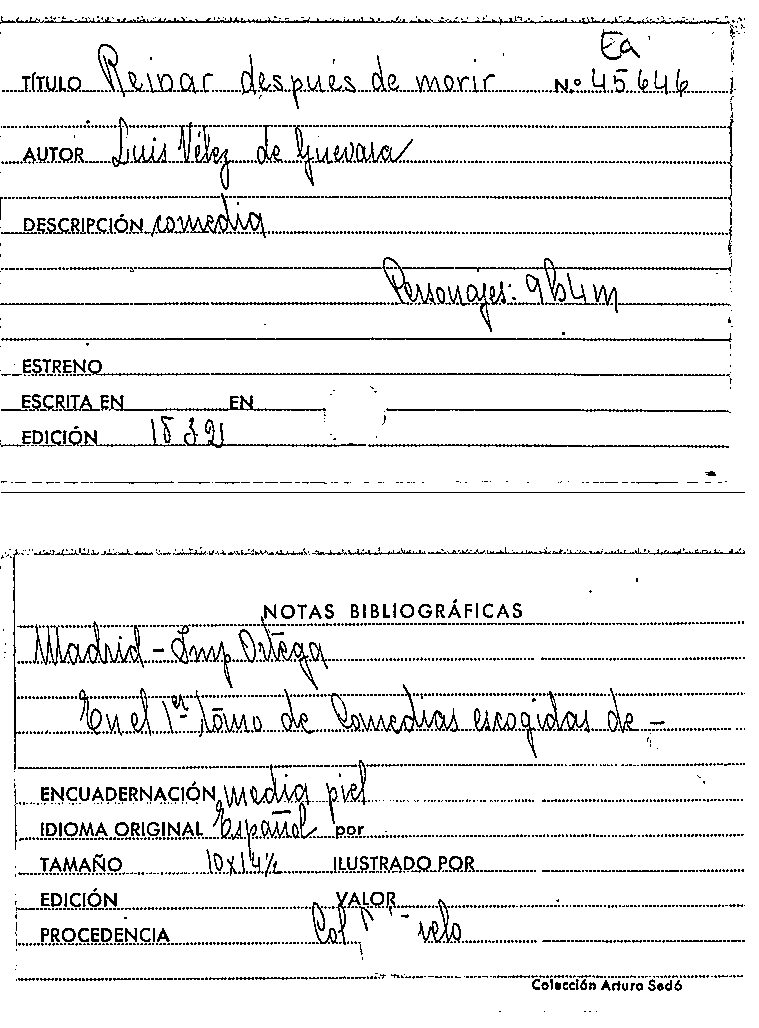 Ea
TÍTULO Reinar después de morir N.º 45646
AUTOR Luis Vélez de Guevara
DESCRIPCIÓN comedia
Personajes: 9h4m
ESTRENO
ESCRITA EN EN
EDICIÓN
NOTAS BIBLIOGRÁFICAS
Madrid - Imp Ortega
En el 1er tomo de Comedias escogidas de -
ENCUADERNACIÓN media piel
IDIOMA ORIGINAL Español por
TAMAÑO 10x14½ ILUSTRADO POR
EDICIÓN VALOR
PROCEDENCIA Col
Colección Arturo Sedó